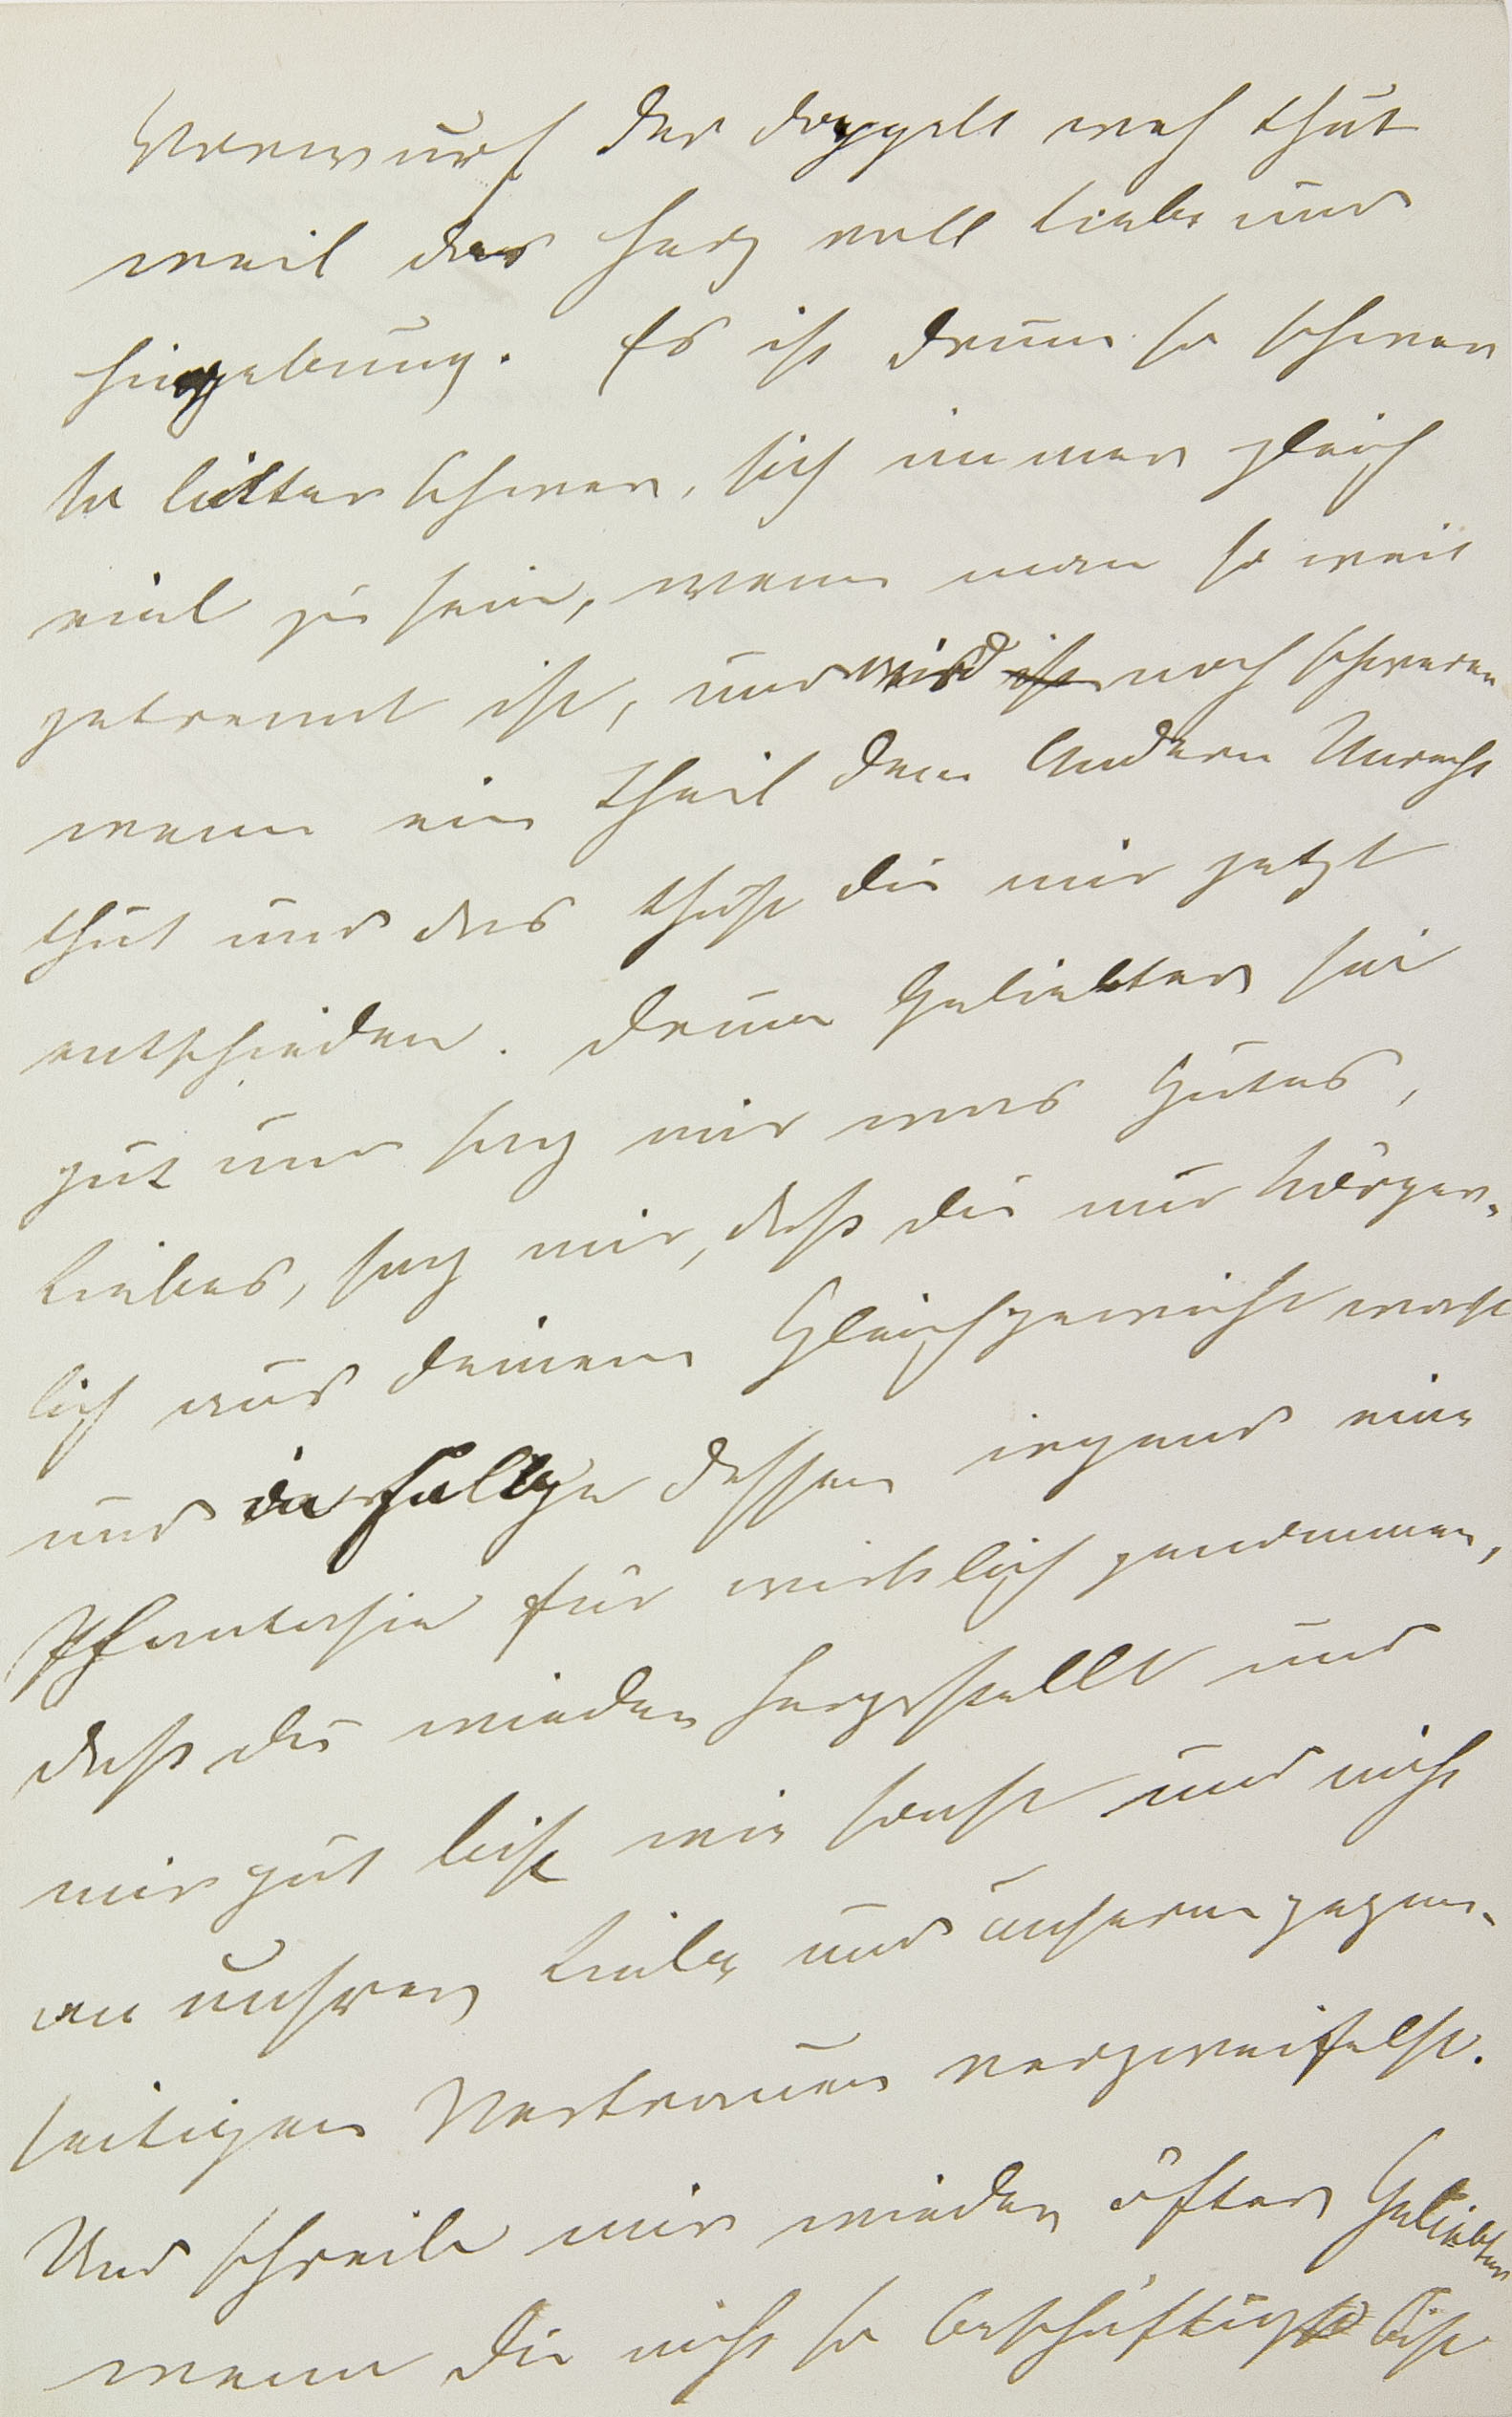 Vorwurf der doppelt weh thut
weil das Herz voll Liebe und
Hingebung. Es ist drum so schwer
so bitter schwer, sich immer gleich
viel zu sein, wenn man so weit
getrennt ist, und wird ist noch schwerer
wenn ein Theil dem Andern Unrecht
thut und das thust du mir jetzt
entschieden. Drum Geliebter sei
gut und sag mir was Gutes,
Liebes, sag mir, daß du nur körper-
lich aus deinem Gleichgewicht warst
und in Folge dessen irgend eine
Phantasie für wirklich genommen,
daß du wieder hergestellt und
mir gut bist wie sonst und nicht
an unsrer Liebe und unserem gegen-
seitigen Vertrauen verzweifelst.
Und schreibe mir wieder öfter Geliebter
wenn Du nicht so beschäftigt bist